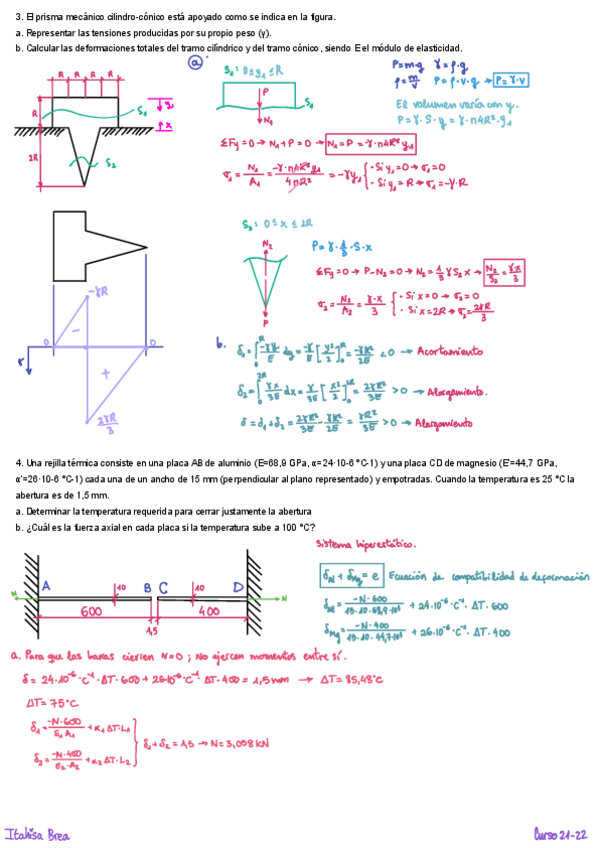 3. El prisma mecánico cilindro-cónico está apoyado como se indica en la figura.
a. Representar las tensiones producidas por su propio peso (γ).
b. Calcular las deformaciones totales del tramo cilíndrico y del tramo cónico, siendo E el módulo de elasticidad.
a
R R R R
R
2R
y
x
S₁
S₂
S₁: 0≤y₁≤R
P
N₁
S₁
P=m·g γ=ρ·g
ρ=m/V P=ρ·v·g → P=γ·v
El volumen varía con y.
P=γ·S·y = γ·π4R²·y₁
ΣFy=0 → N₁+P=0 → N₁=P=-γ·π4R²y₁
σ₁= N₁/A₁ = -γ·π4R²y₁/4πR² = -γy₁ { · Si y₁=0 → σ₁=0
· Si y₁=R → σ₁=-γ·R
S₂: 0≤x≤2R
N₂
P
P=γ·1/3·S·x
ΣFy=0 → P-N₂=0 → N₂=1/3 γS₂x → N₂/S₂=γ·x/3
σ₂= N₂/A₂ = γ·x/3 { · Si x=0 → σ₂=0
· Si x=2R → σ₂=2γR/3
-γR
-
0 0
σ
+
2γR/3
b. δ₁=∫₀ᴿ -γy/E dy = -γ/E [y²/2]₀ᴿ = -γR²/2E <0 → Acortamiento
δ₂=∫₀²ᴿ γx/3E dx = γ/3E [x²/2]₀²ᴿ = 2γR²/3E >0 → Alargamiento.
δ=δ₁+δ₂= 2γR²/3E - γR²/2E = γR²/6E >0 → Alargamiento
4. Una rejilla térmica consiste en una placa AB de aluminio (E=68,9 GPa, α=24·10-6 °C-1) y una placa CD de magnesio (E'=44,7 GPa,
α'=26·10-6 °C-1) cada una de un ancho de 15 mm (perpendicular al plano representado) y empotradas. Cuando la temperatura es 25 °C la
abertura es de 1,5 mm.
a. Determinar la temperatura requerida para cerrar justamente la abertura
b. ¿Cuál es la fuerza axial en cada placa si la temperatura sube a 100 °C?
Sistema hiperestático.
N A 10 B C 10 D N
600 1,5 400
δAl + δMg = e Ecuación de compatibilidad de deformación
δAl = -N·600/15·10·68,9·10³ + 24·10⁻⁶·C⁻¹·ΔT·600
δMg = -N·400/15·10·44,7·10³ + 26·10⁻⁶·C⁻¹·ΔT·400
a. Para que las barras cierren N=0; No ejercen momentos entre sí.
δ = 24·10⁻⁶·C⁻¹·ΔT·600 + 26·10⁻⁶·C⁻¹·ΔT·400 = 1,5mm → ΔT= 85,48°C
ΔT= 75°C
δ₁= -N·600/E₁A₁ + α₁ΔT·L₁
δ₁+δ₂=1,5 → N=3,058 kN
δ₂= -N·400/E₂·A₂ + α₂ΔT·L₂
Italisa Brea
Curso 21-22